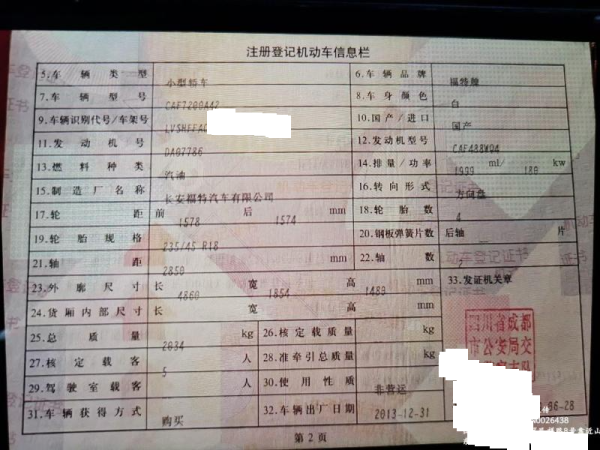 注册登记机动车信息栏
5.车辆类型 小型轿车 6.车辆品牌 福特牌
7.车辆型号 CAF7200A42 8.车身颜色 白
9.车辆识别代号/车架号 LVSHFFAC 10.国产/进口 国产
11.发动机号 DA07786 12.发动机型号 CAF488WQ4
13.燃料种类 汽油 14.排量/功率 1999 ml/ 180 kw
15.制造厂名称 长安福特汽车有限公司 16.转向形式 方向盘
17.轮距 前 1578 后 1574 mm 18.轮胎数 4
19.轮胎规格 235/45 R18 20.钢板弹簧片数 后轴 片
21.轴距 2850 mm 22.轴数 2
23.外廓尺寸 长 4860 宽 1854 高 1483 mm 33.发证机关章
24.货厢内部尺寸 长 宽 高 mm
25.总质量 2034 kg 26.核定载质量 kg
27.核定载客 5 人 28.准牵引总质量 kg
29.驾驶室载客 人 30.使用性质 非营运
31.车辆获得方式 购买 32.车辆出厂日期 2013-12-31
四川省成都
市公安局交
06-28
0026438
第2页